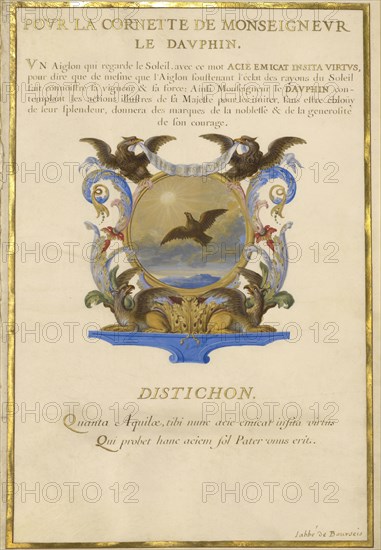 POVR LA CORNETTE DE MONSEIGNEVR
LE DAVPHIN.
VN Aiglon qui regarde le Soleil, avec ce mot ACIE EMICAT INSITA VIRTVS,
pour dire que de mesme que l'Aiglon soustenant l'éclat des rayons du Soleil
fait connoistre sa vigueur & sa force; Ainsi Monseigneur le DAVPHIN con-
templant les actions illustres de sa Majesté pour les imiter, sans estre ébloüy
de leur splendeur, donnera des marques de la noblesse & de la generosité
de son courage.
DISTICHON.
Quanta Aquilæ, tibi nunc acie emicat insita virtus
Qui probet hanc aciem sol Pater vnus erit.
l'abbé de Bourseis
PHOTO12